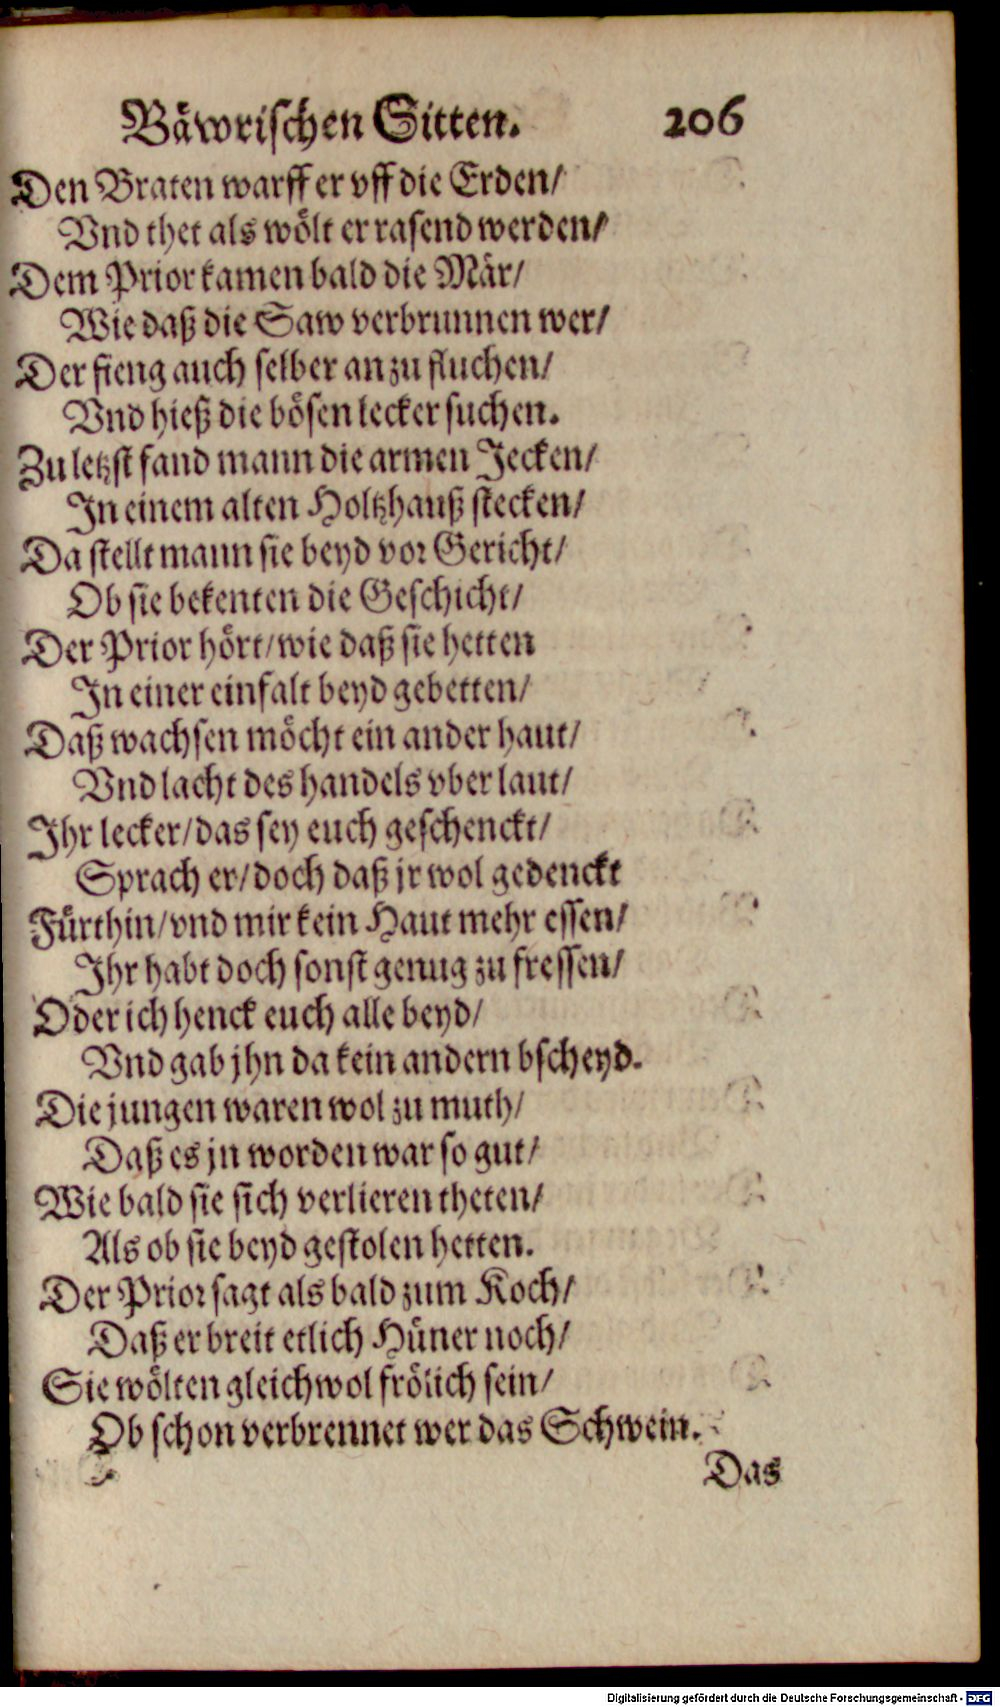 Bäwrischen Sitten. 206
Den Braten warff er vff die Erden/
Vnd thet als wölt er rasend werden/
Dem Prior kamen bald die Mär/
Wie daß die Saw verbrunnen wer/
Der fieng auch selber an zu fluchen/
Vnd hieß die bösen lecker suchen.
Zu letzst fand mann die armen Jecken/
In einem alten Holtzhauß stecken/
Da stellt mann sie beyd vor Gericht/
Ob sie bekenten die Geschicht/
Der Prior hört/wie daß sie hetten
In einer einfalt beyd gebetten/
Daß wachsen möcht ein ander haut/
Vnd lacht des handels vber laut/
Ihr lecker/das sey euch geschenckt/
Sprach er/doch daß jr wol gedenckt
Fürthin/vnd mir kein Haut mehr essen/
Ihr habt doch sonst genug zu fressen/
Oder ich henck euch alle beyd/
Vnd gab jhn da kein andern bscheyd.
Die jungen waren wol zu muth/
Daß es jn worden war so gut/
Wie bald sie sich verlieren theten/
Als ob sie beyd gestolen hetten.
Der Prior sagt als bald zum Koch/
Daß er breit etlich Hüner noch/
Sie wölten gleichwol frölich sein/
Ob schon verbrennet wer das Schwein.
Das
Digitalisierung gefördert durch die Deutsche Forschungsgemeinschaft - DFG